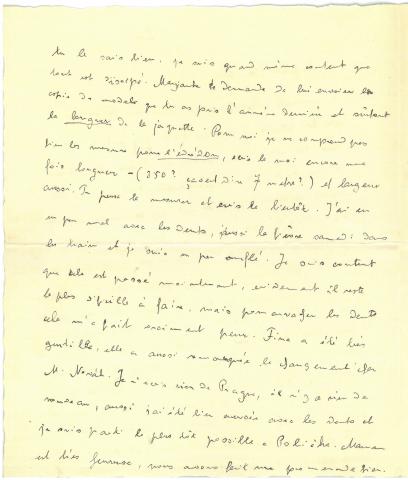 tu le sais bien. je suis quand même content que
tout est dissipé. Marjanka te demande de lui envoier la
copie de modele que tu as pris l'année dernière et surtout
la longueur de la jaquette. Pour moi je ne comprend pas
bien les mesures pour l'édrédon, écris le moi encore une
fois longueur - (350? 7 metre?) et largeur
aussi. Tu peux le mesurer et écris le bientôt. J'ai eu
un peu mal avec les dents, la fièvre samedi dans
le train et je suis un peu enflé. Je suis content
que cela est passé maintenant, évidement il reste
le plus difficile à faire, mais pour arracher les dents
cela m'a fait vraiment peur. Fina a été très
gentille, elle a aussi remarquée le changement chez
M. Novák. Je n'écris rien de Prague, il n'y a rien de
nouveau, aussi j'ai été bien envoié avec les dents et
je suis parti le plus tôt possible a Poličke. Maman
est très heureuse, nous avons fait une promenade hier.